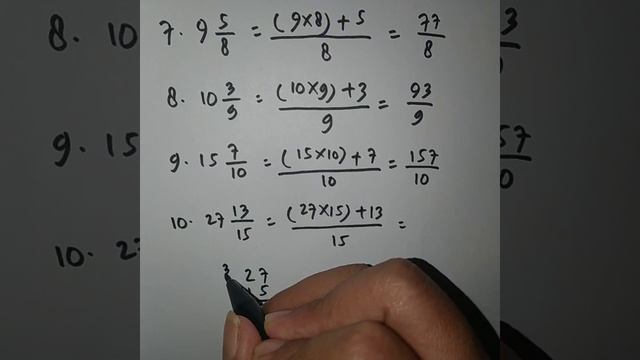 7. 9 5/8 = (9×8)+5/8 = 77/8
8. 10 3/9 = (10×9)+3/9 = 93/9
9. 15 7/10 = (15×10)+7/10 = 157/10
10. 27 13/15 = (27×15)+13/15 =
3 27
5